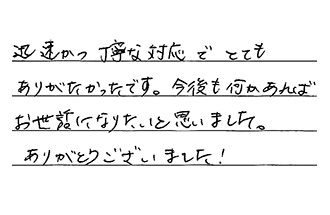 迅速かつ丁寧な対応でとても
ありがたかったです。今後も何かあれば
お世話になりたいと思いました。
ありがとうございました!